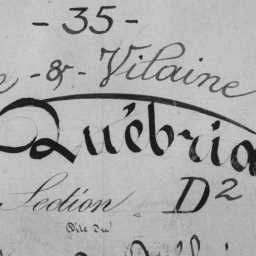 - 35 -
e -&- Vilaine
Québria
Section D²
dite du